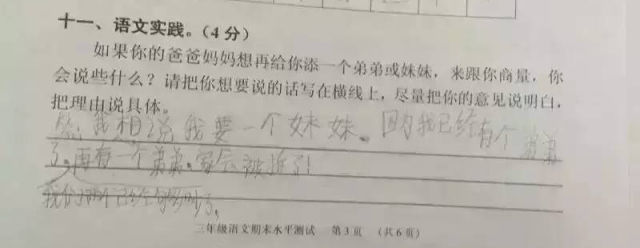 十一、语文实践。（4分）
如果你的爸爸妈妈想再给你添一个弟弟或妹妹，来跟你商量，你
会说些什么？请把你想要说的话写在横线上，尽量把你的意见说明白，
把理由说具体。
我想说我要一个妹妹。因为我已经有个弟弟
了。再有一个弟弟，家会被拆了！
我们两个已经
三年级语文期末水平测试 第3页 （共6页）